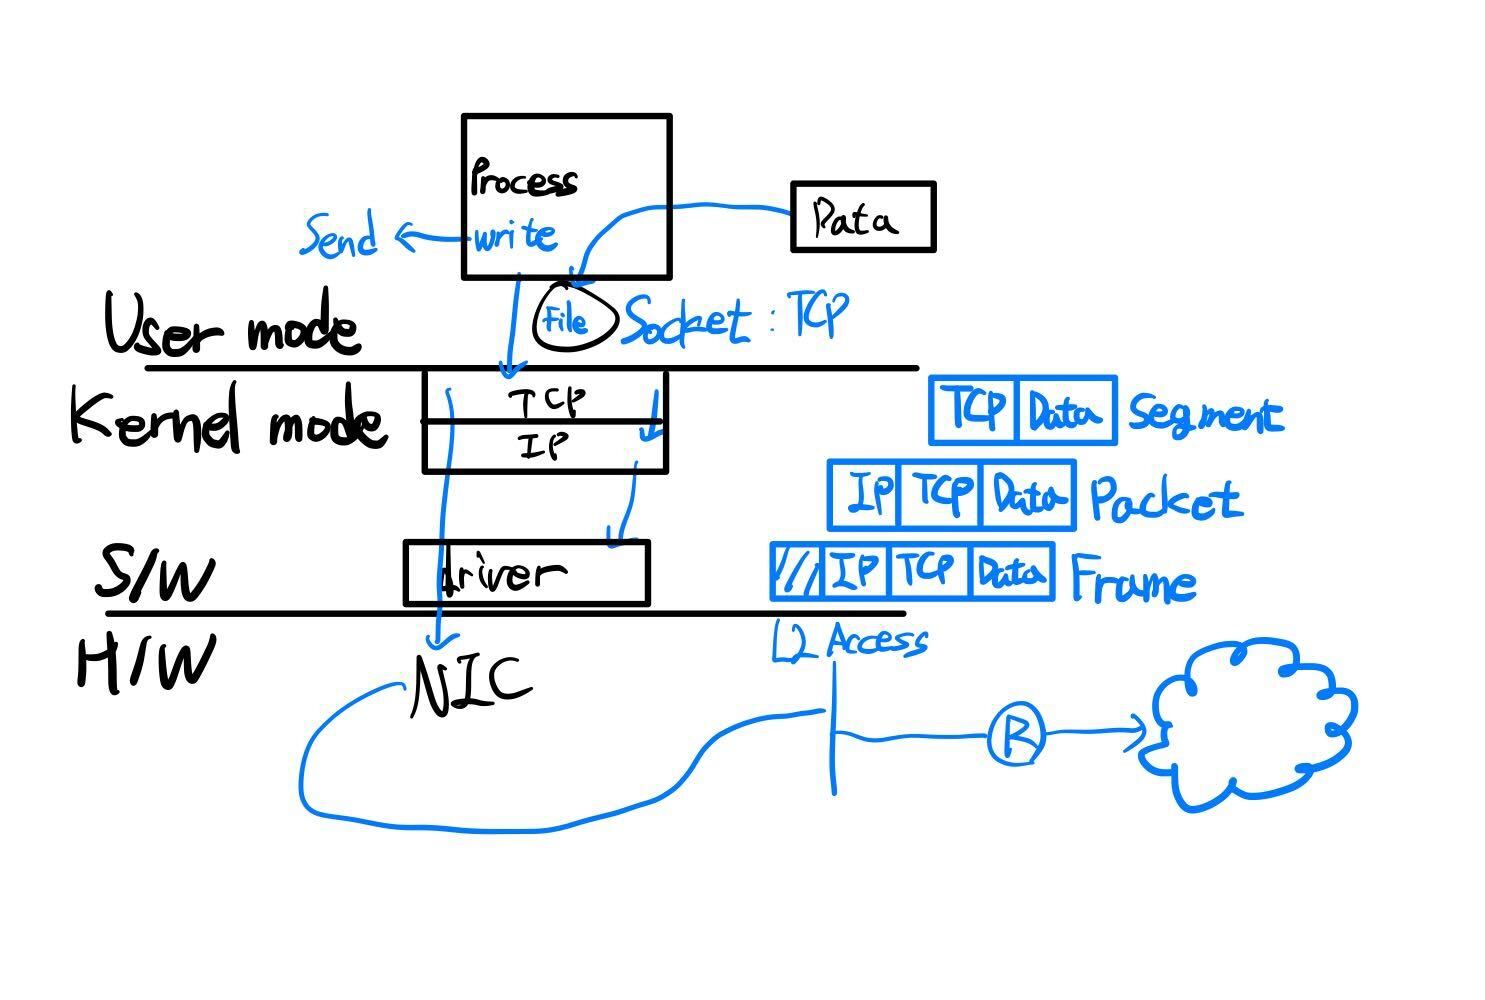 Process
Data
Send
write
File
Socket : TCP
User mode
Kernel mode
TCP
IP
TCP Data Segment
IP TCP Data Packet
S/W
driver
IP TCP Data Frame
H/W
L2 Access
NIC
R